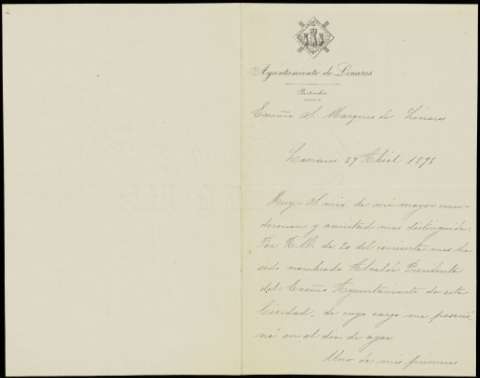 Ayuntamiento de Linares
Excmo Sr. Marques de Linares
Linares 27 Abril 1895
Muy Sr. mio de mi mayor consi-
deracion y amistad mas distinguida:
Por R.O. de 20 del corriente mes he
sido nombrado Alcalde Presidente
del Excmo Ayuntamiento de esta
Ciudad, de cuyo cargo me posesio-
né en el dia de ayer
Uno de mis primeros